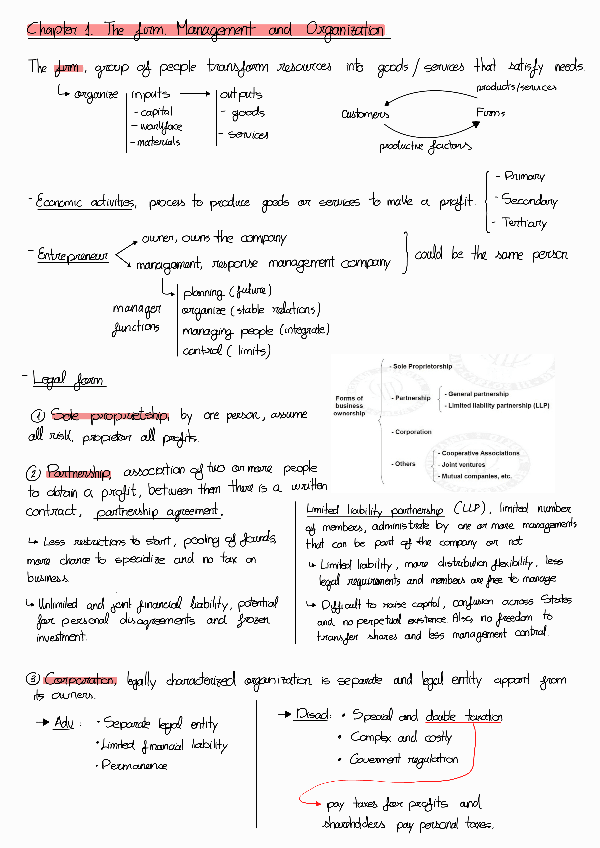 Chapter 1. The firm. Management and Organization
The firm, group of people transform resources into goods/services that satisfy needs.
organize inputs outputs
- capital
- workface
- materials
- goods
- services
products/services
Customers Firms
productive factors
- Economic activities, process to produce goods or services to make a profit.
- Primary
- Secondary
- Tertiary
- Entrepreneur
owner, owns the company
management, response management company
could be the same person
manager functions
planning (future)
organize (stable relations)
managing people (integrate)
control (limits)
- Legal form
Forms of business ownership
- Sole Proprietorship
- Partnership
- General partnership
- Limited liability partnership (LLP)
- Corporation
- Others
- Cooperative Associations
- Joint ventures
- Mutual companies, etc.
① Sole proprietship, by one person, assume
all risk, propietor all profits.
② Partnership, association of two or more people
to obtain a profit, between them there is a written
contract, partnership agreement.
↳ Less restrictions to start, pooling of founds,
more chance to specialize and no tax on
business.
↳ Unlimited and joint financial liability, potential
for personal disagreements and frozen
investment.
Limited liability partnership (LLP), limited number
of members, administrate by one or more managements
that can be part of the company or not
↳ Limited liability, more distribution flexibility, less
legal requirements and members are free to manage
↳ Difficult to raise capital, confusion across States
and no perpetual existence. Also, no freedom to
transfer shares and less management control.
③ Corporation, legally characterized organization is separate and legal entity appart from
its owners.
→ Adv:
• Separate legal entity
• Limited financial liability
• Permanence
→ Disad:
• Special and double taxation
• Complex and costly
• Goverment regulation
pay taxes for profits and
shareholders pay personal taxes.